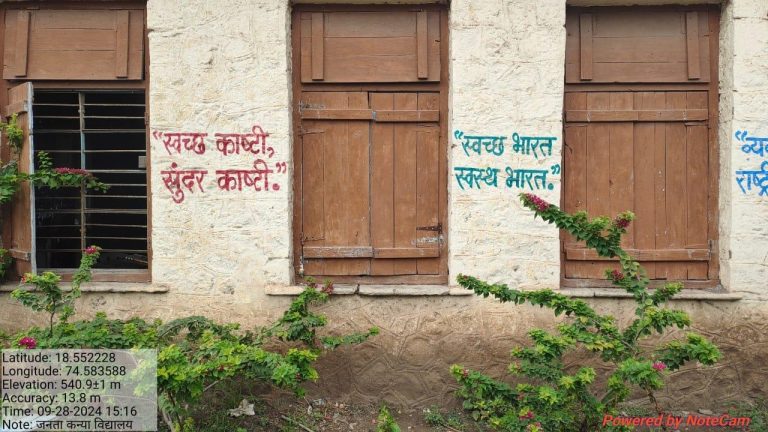 "स्वच्छ काष्टी,
सुंदर काष्टी."
"स्वच्छ भारत
स्वस्थ भारत."
Latitude: 18.552228
Longitude: 74.583588
Elevation: 540.9±1 m
Accuracy: 13.8 m
Time: 09-28-2024 15:16
Note: जनता कन्या विद्यालय
Powered by NoteCam